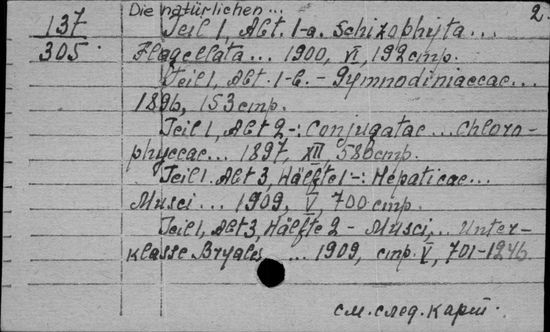 Die natürlichen... 2.
137 Teil 1, Abt. 1-a. Schizophyta...
305 Flagellata... 1900, VI, 192 стр.
Teil 1, Abt. 1-b. - Gymnodiniaceae...
1896, 153 стр.
Teil 1, Abt 2-: Conjugatae... Chloro-
phyceae... 1897, XIII, 580 стр.
Teil 1. Abt 3, Hälfte 1-: Hepaticae...
Musci... 1909, V, 700 стр.
Teil 1, Abt 3, Hälfte 2 - Musci... Unter-
klasse Bryales ... 1909, стр. V, 701-1246.
см. след. карт.